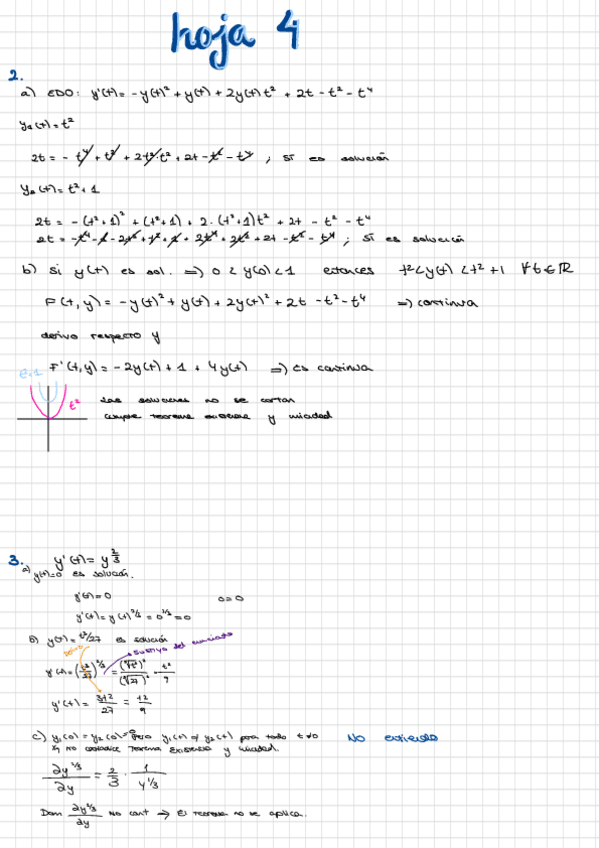 hoja 4
2.
a) EDO: y'(t) = -y(t)² + y(t) + 2y(t)t² + 2t - t² - t⁴
y₁(t) = t²
2t = - t⁴ + t² + 2t²·t² + 2t - t² - t⁴ ; sí es solución
y₂(t) = t² + 1
2t = -(t²+1)² + (t²+1) + 2·(t²+1)t² + 2t - t² - t⁴
2t = -t⁴ - 1 - 2t² + t² + 1 + 2t⁴ + 2t² + 2t - t² - t⁴ ; sí es solución
b) si y(t) es sol. => 0 < y(0) < 1 entonces t² < y(t) < t² + 1 ∀t ∈ ℝ
F(t, y) = -y(t)² + y(t) + 2y(t)² + 2t - t² - t⁴ => continua
derivo respecto y
F'(t, y) = -2y(t) + 1 + 4y(t) => es continua
t²
Las soluciones no se cortan
cumple teorema existencia y unicidad
3. y'(t) = y^{2/3}
a) y(t)=0 es solución.
y'(t) = 0 0=0
y'(t) = y(t)^{2/3} = 0^{2/3} = 0
b) y(t) = t³/27 es solución
derivo
sustituyo del enunciado
y'(t) = (t³/27)^{2/3} = (∛t³)²/(∛27)² = t²/9
y'(t) = 3t²/27 = t²/9
c) y₁(0) = y₂(0) = 0 pero y₁(t) ≠ y₂(t) para todo t≠0 NO entiendo
y no contradice Teorema Existencia y unicidad.
∂y^{2/3}/∂y = 2/3 · 1/y^{1/3}
Dom ∂y^{2/3}/∂y No cont => El teorema no se aplica.